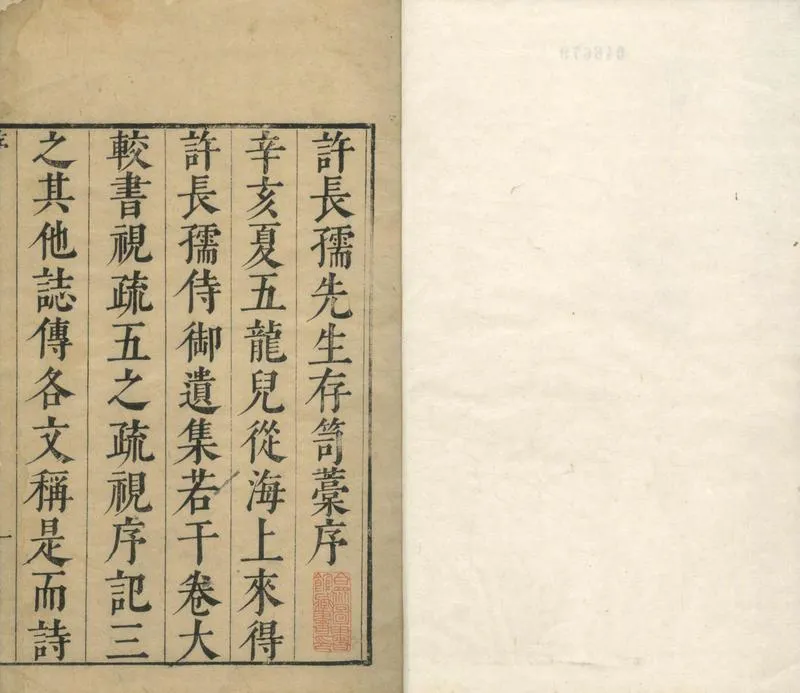 許長孺先生存笥藁序
辛亥夏五龍兒從海上來得
許長孺侍御遺集若干卷大
較書視疏五之疏視序記三
之其他誌傳各文稱是而詩